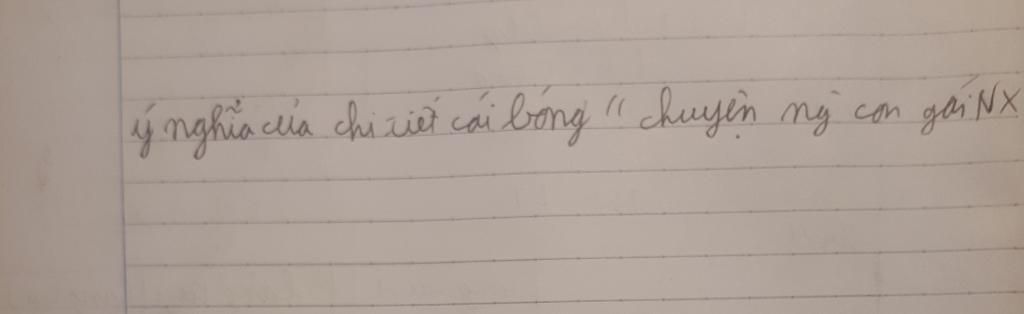 ý nghĩa của chi tiết cái bóng " chuyện ng con gái NX